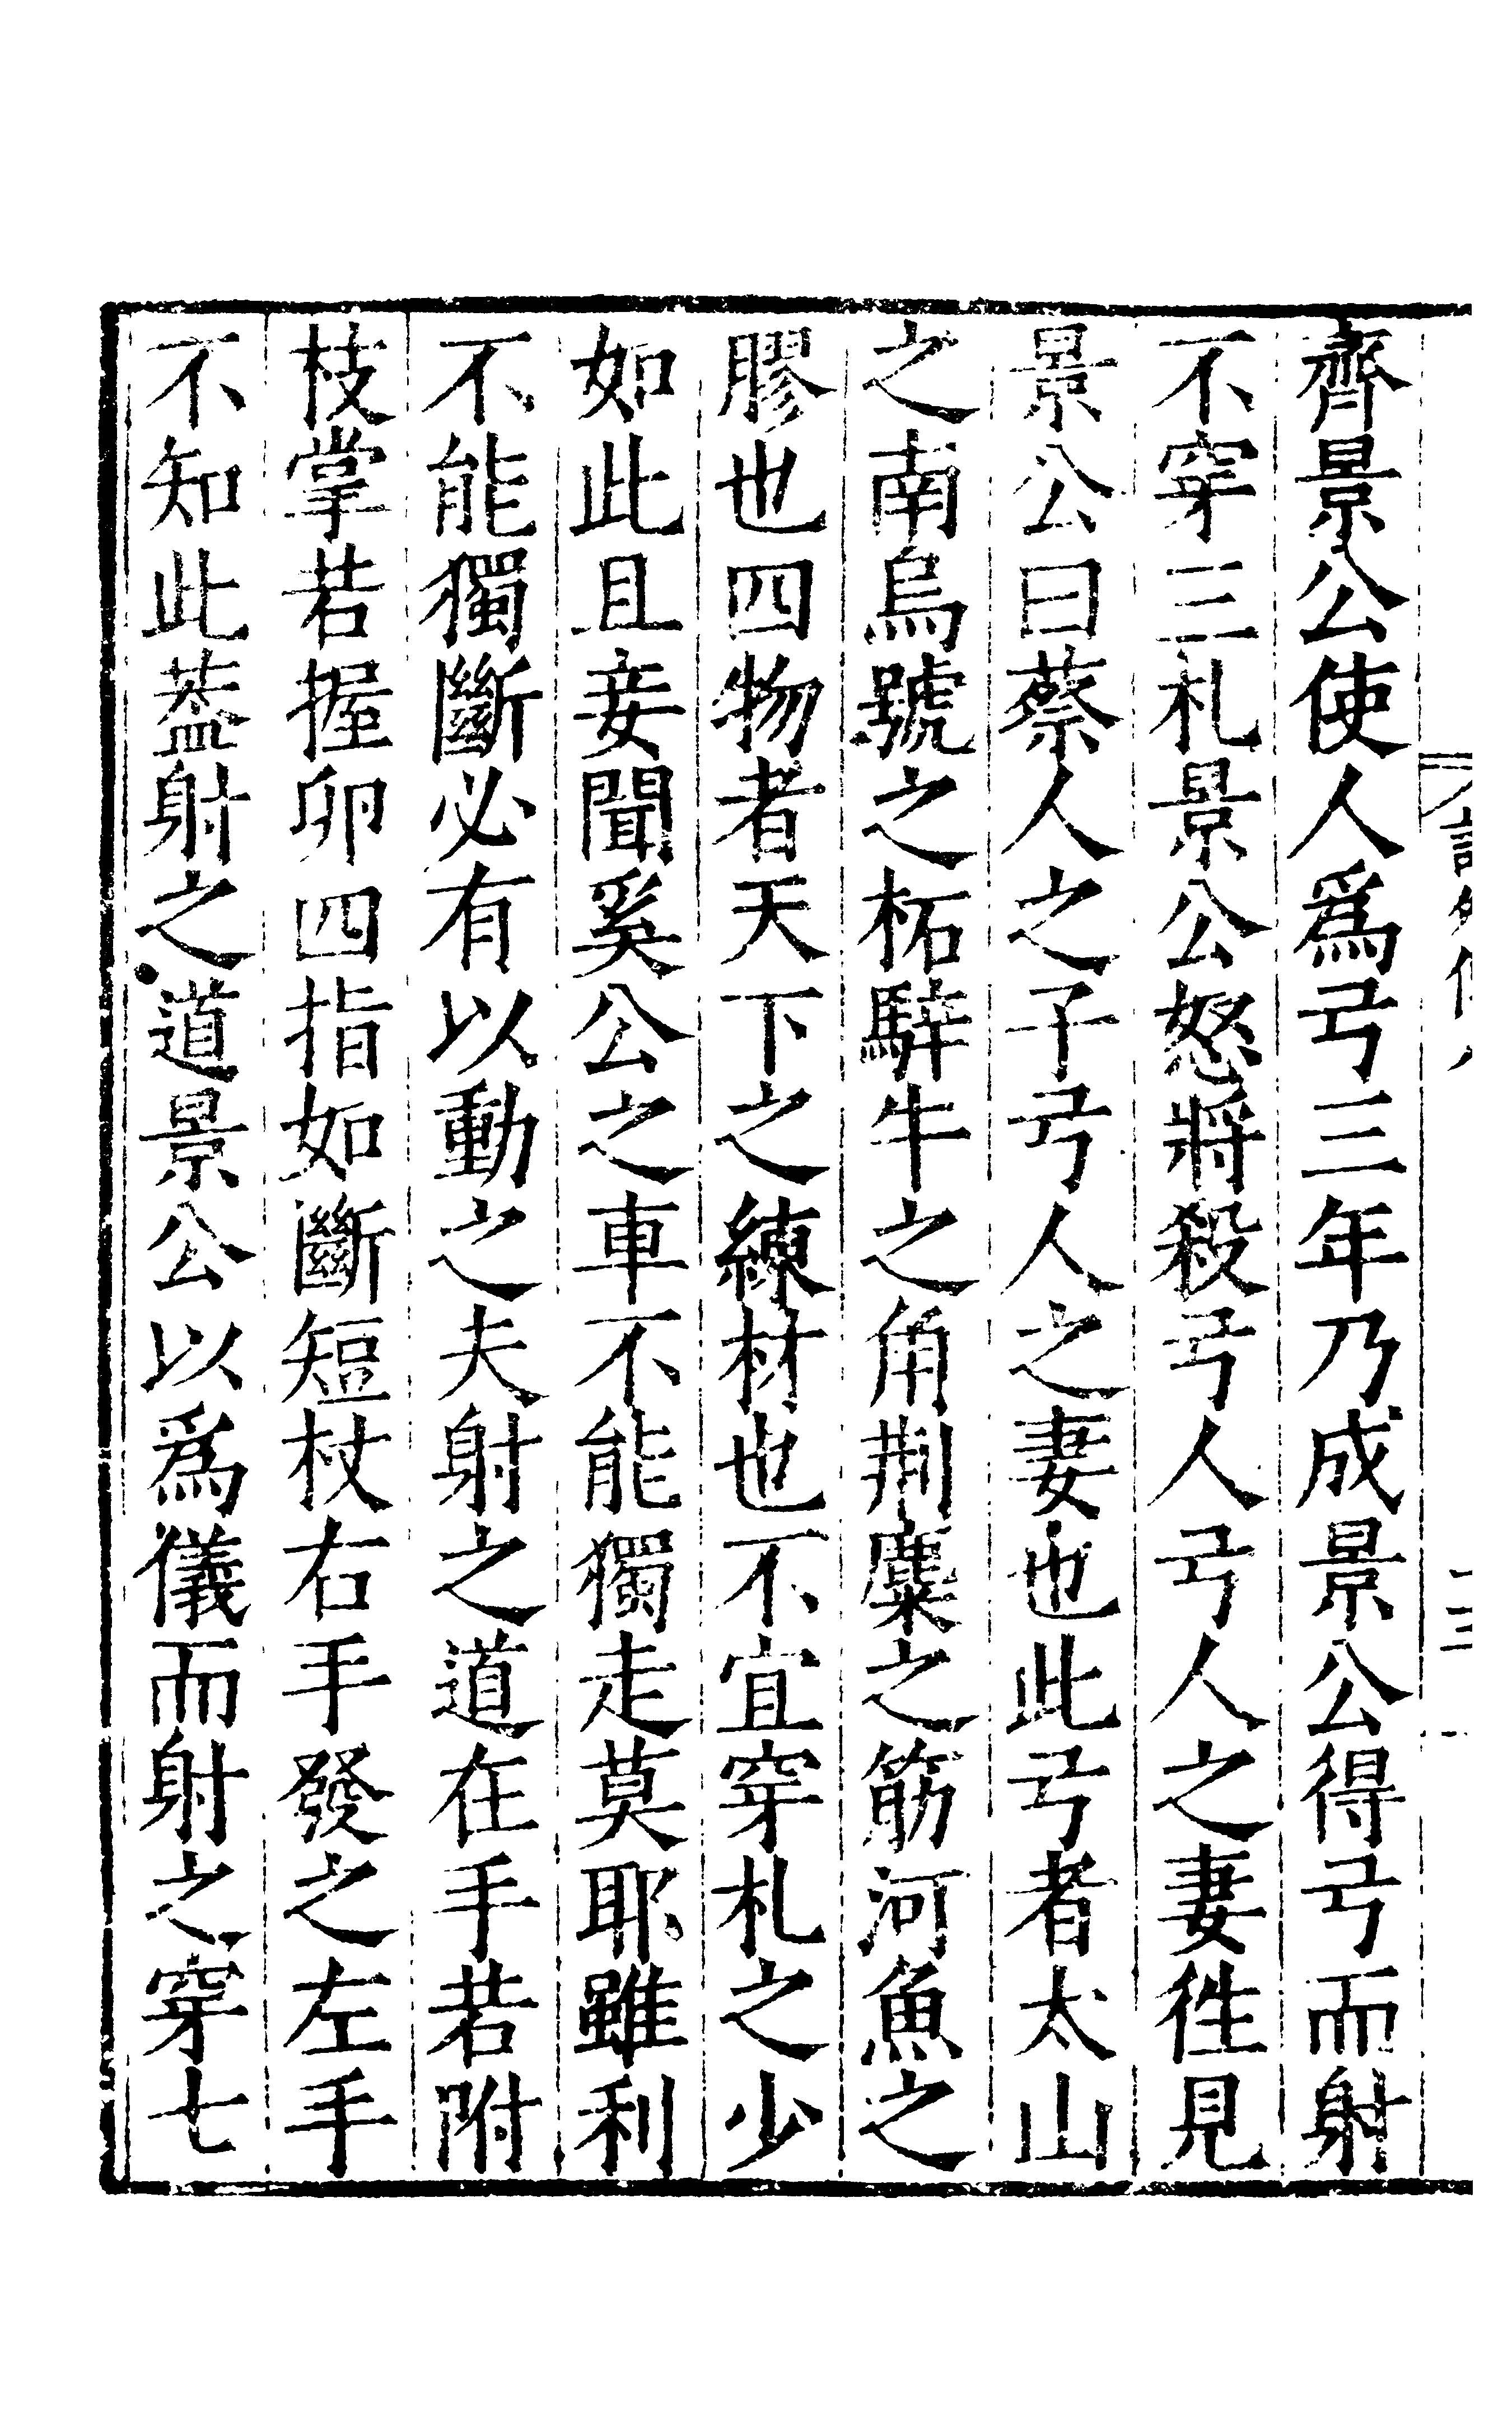 齊景公使人爲弓三年乃成景公得弓而射
不穿三札景公怒將殺弓人弓人之妻徃見
景公曰蔡人之子弓人之妻也此弓者太山
之南烏號之柘騂牛之角荆麋之筋河魚之
膠也四物者天下之練材也不宜穿札之少
如此且妾聞奚公之車不能獨走莫耶雖利
不能獨斷必有以動之夫射之道在手若附
枝掌若握卵四指如斷短杖右手發之左手
不知此葢射之道景公以爲儀而射之穿七